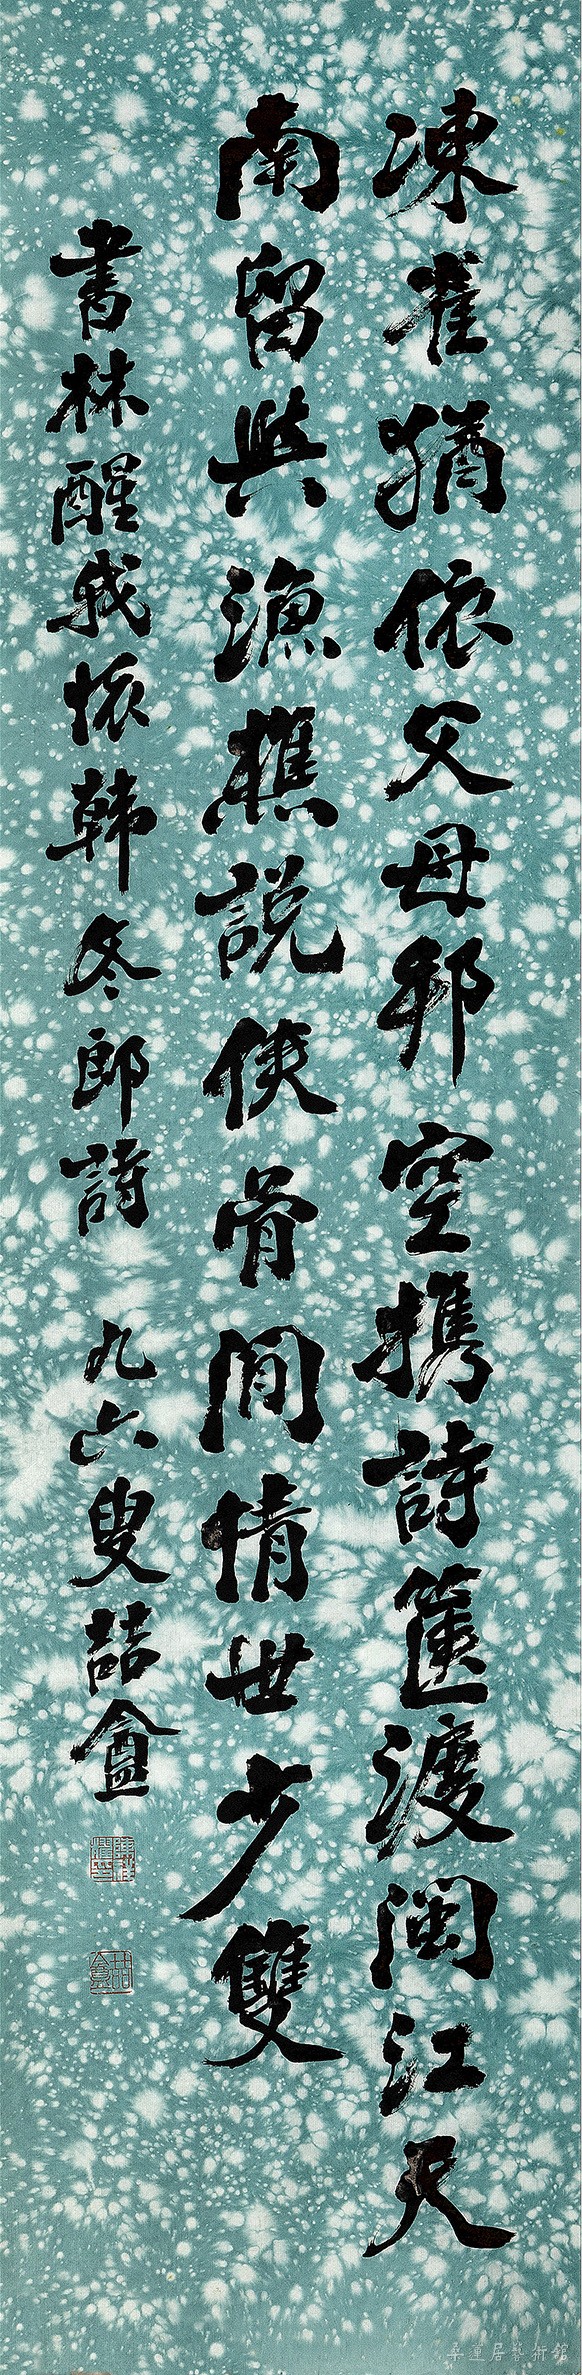 凍雀猶依父母邦空携詩篋渡閩江天
南留與漁樵說俠骨閒情世少雙
書林醒我懷韓冬郎詩 九六叟喆盦
喆盦
桑蓮居藝術館